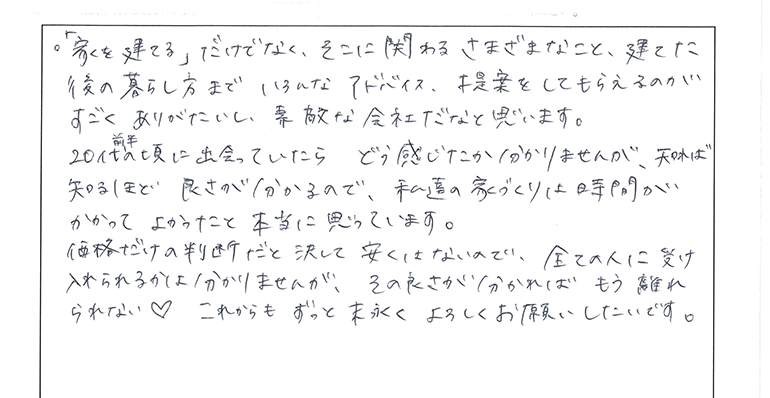 。「家を建てる」だけでなく、そこに関わるさまざまなこと、建てた
後の暮らし方まで いろんな アドバイス、提案をしてもらえるのが
すごく ありがたいし、素敵な会社だなと思います。
20代前半の頃に出会っていたら どう感じたか分かりませんが、知れば
知るほど 良さが分かるので、私達の家づくりは時間が
かかって よかったこと 本当に思っています。
価格だけの判断だと決して 安くはないので、全ての人に受け
入れられるかは分かりませんが、その良さが分かれば もう離れ
られない♡ これからも ずっと末永く よろしくお願いしたいです。